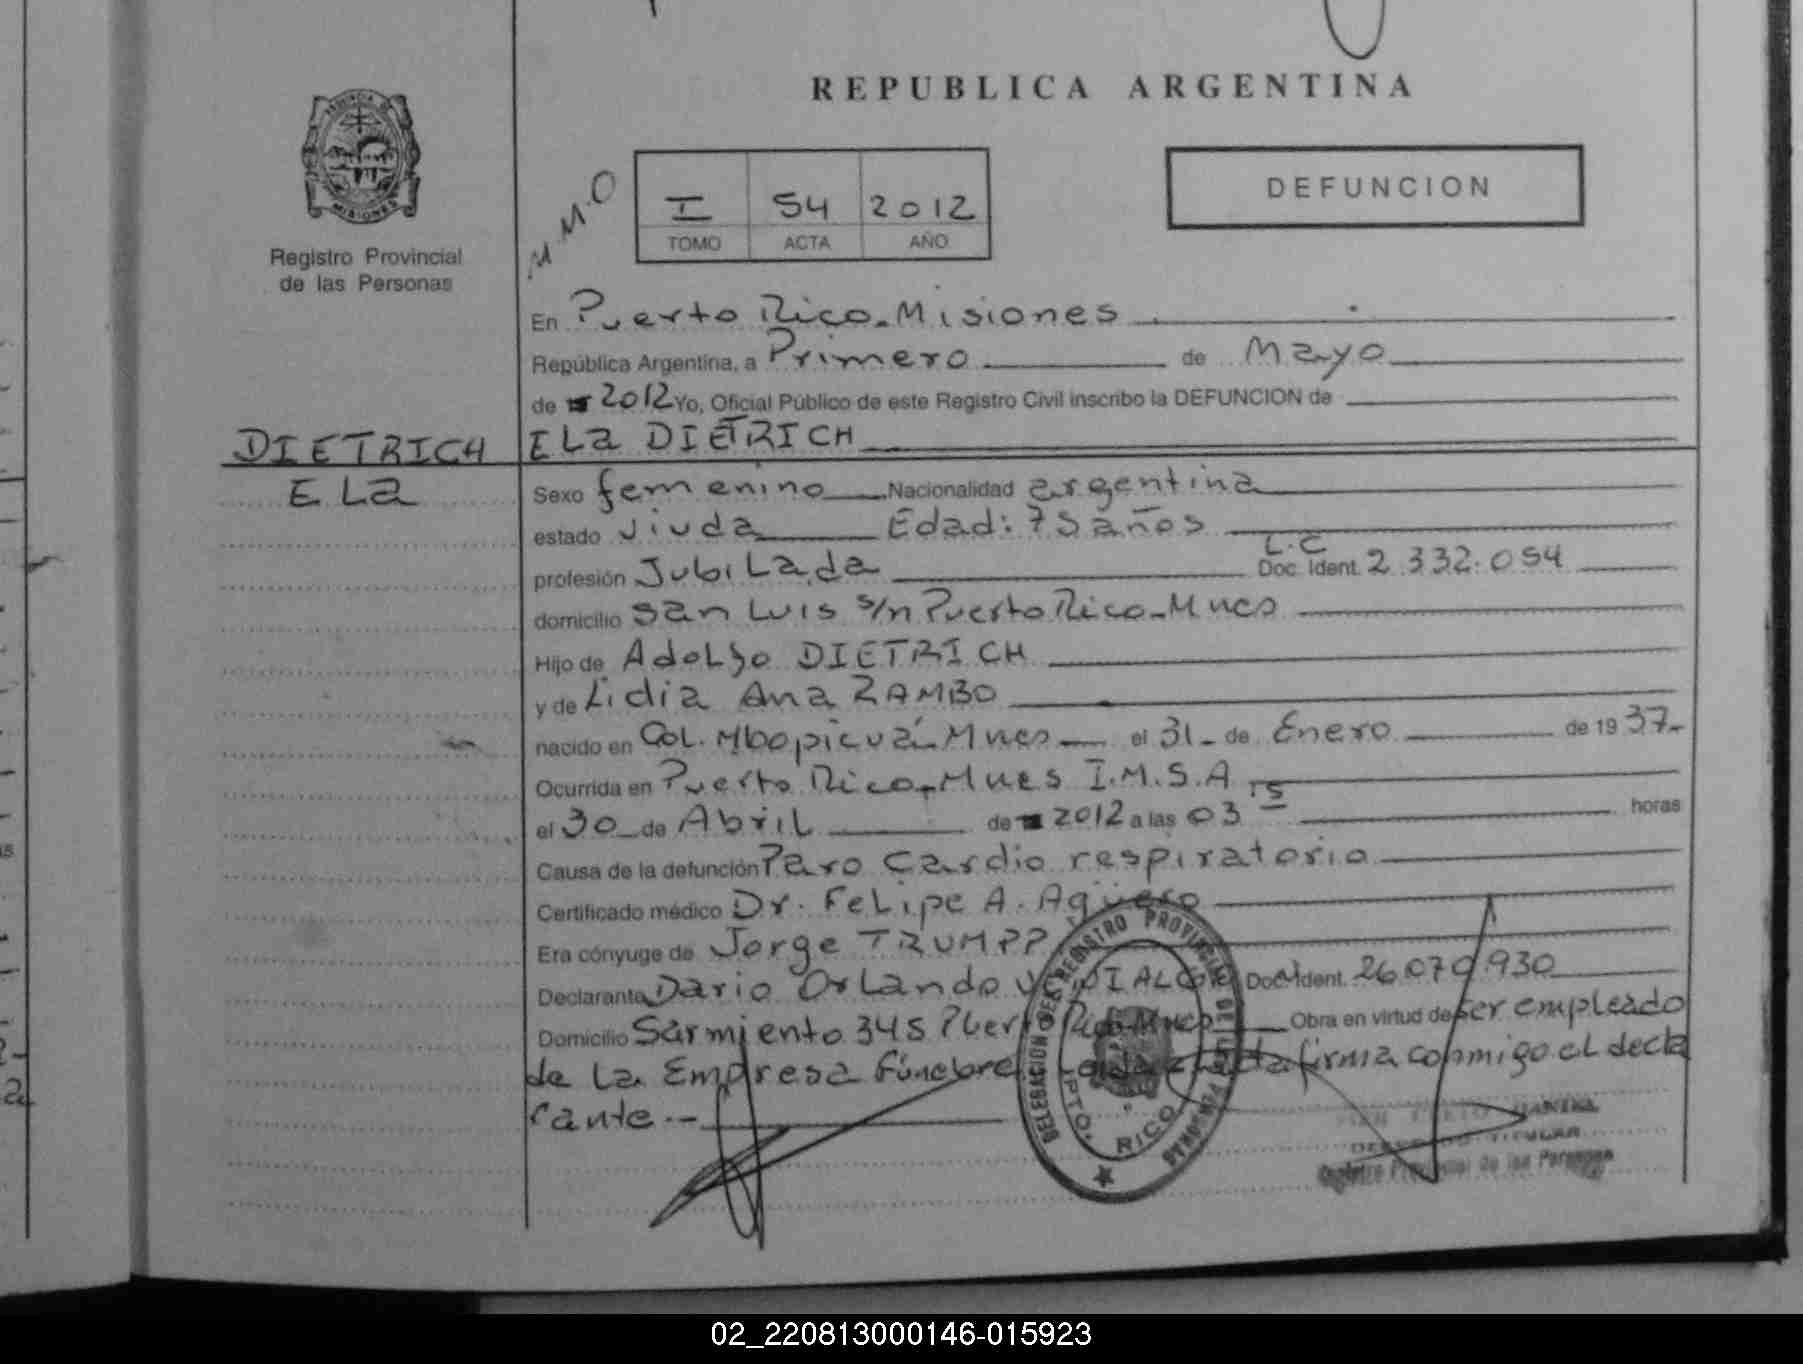 REPUBLICA ARGENTINA
PROVINCIA DE
MISIONES
Registro Provincial
de las Personas
M.M.O
I 54 2012
TOMO ACTA AÑO
DEFUNCION
En Puerto Rico-Misiones
República Argentina, a Primero de Mayo
de 2012 Yo, Oficial Público de este Registro Civil inscribo la DEFUNCION de
DIETRICH ELa DIETRICH
ELa Sexo femenino Nacionalidad argentina
estado viuda Edad: 75 años
profesión JubiLada L.C Doc. Ident. 2.332.054
domicilio San Luis s/n Puerto Rico-Mnes
Hijo de Adolfo DIETRICH
y de Lidia Ana ZAMBO
nacido en Col. Mbopicuá-Mnes el 31 de Enero de 19 37-
Ocurrida en Puerto Rico-Mnes I.M.S.A
el 30 de Abril de 2012 a las 03 15 horas
Causa de la defunción Paro Cardio respiratorio
Certificado médico Dr. Felipe A. Agüero
Era cónyuge de Jorge TRUMPP
Declarante Dario Orlando Doc. Ident. 26.070.930
Domicilio Sarmiento 345 Puerto Rico-Mnes Obra en virtud de ser empleado
de La Empresa Fúnebre. firma conmigo el decla
rante.--
DELEGACION DEL REGISTRO PROVINCIAL DE LAS PERSONAS
PTO. RICO
DELEGADO TITULAR
Registro Provincial de las Personas
02_220813000146-015923